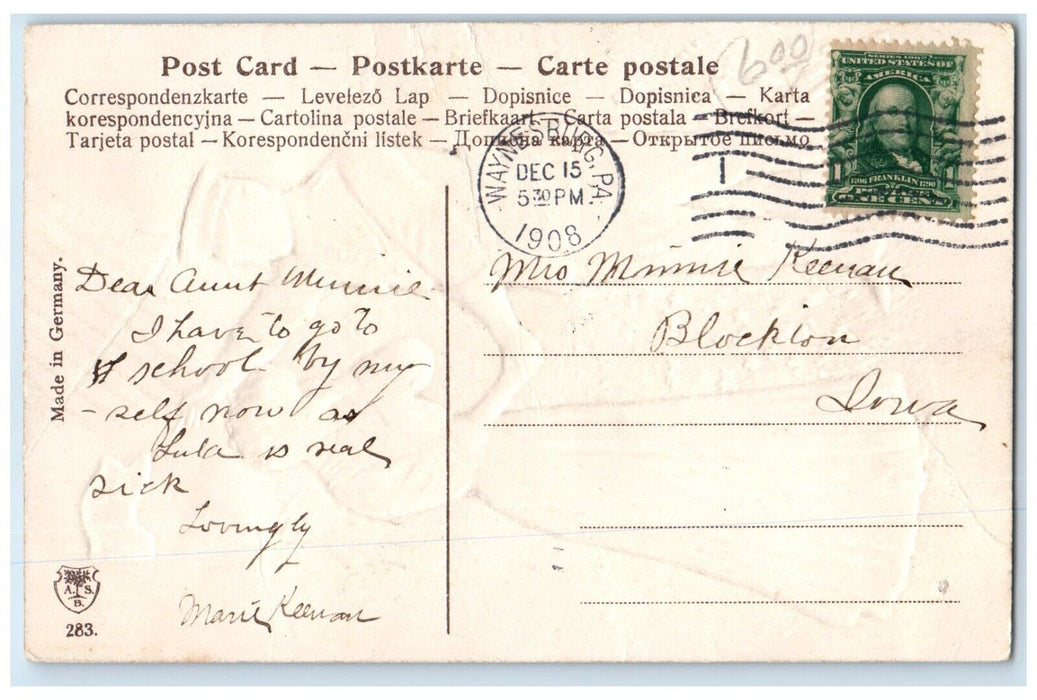 Post Card — Postkarte — Carte postale
Correspondenzkarte — Levelező Lap — Dopisnice — Dopisnica — Karta
korespondencyjna — Cartolina postale — Briefkaart — Carta postala — Brefkort —
Tarjeta postal — Korespondenční lístek — Дописна карта — Открытое письмо
6 00
SERIES 1902
UNITED STATES OF
AMERICA
1706 FRANKLIN 1790
1 1
ONE CENT
WAYNESBURG, PA.
DEC 15
5 30 PM
1908
1
Made in Germany.
Dear Aunt Minnie
I have to go to
school by my
- self now as
Lula is real
sick
Lovingly
Marie Keenan
Mrs Minnie Keenan
Blockton
Iowa
A. S.
B.
283.